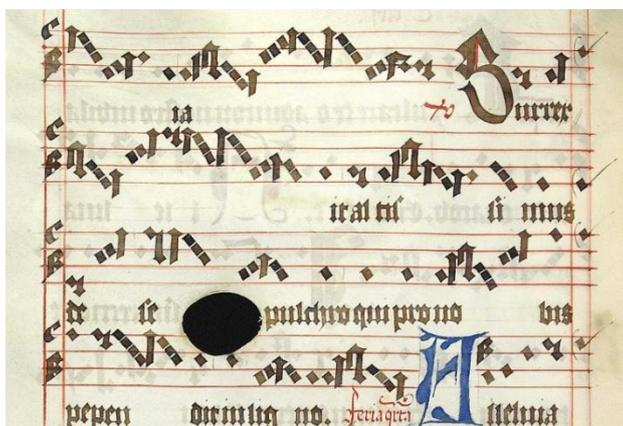 ia ℣ Surrex
it al tis si mus
de se pulchro qui pro no bis
pepen dit in lig no. feria qrta Alleluia